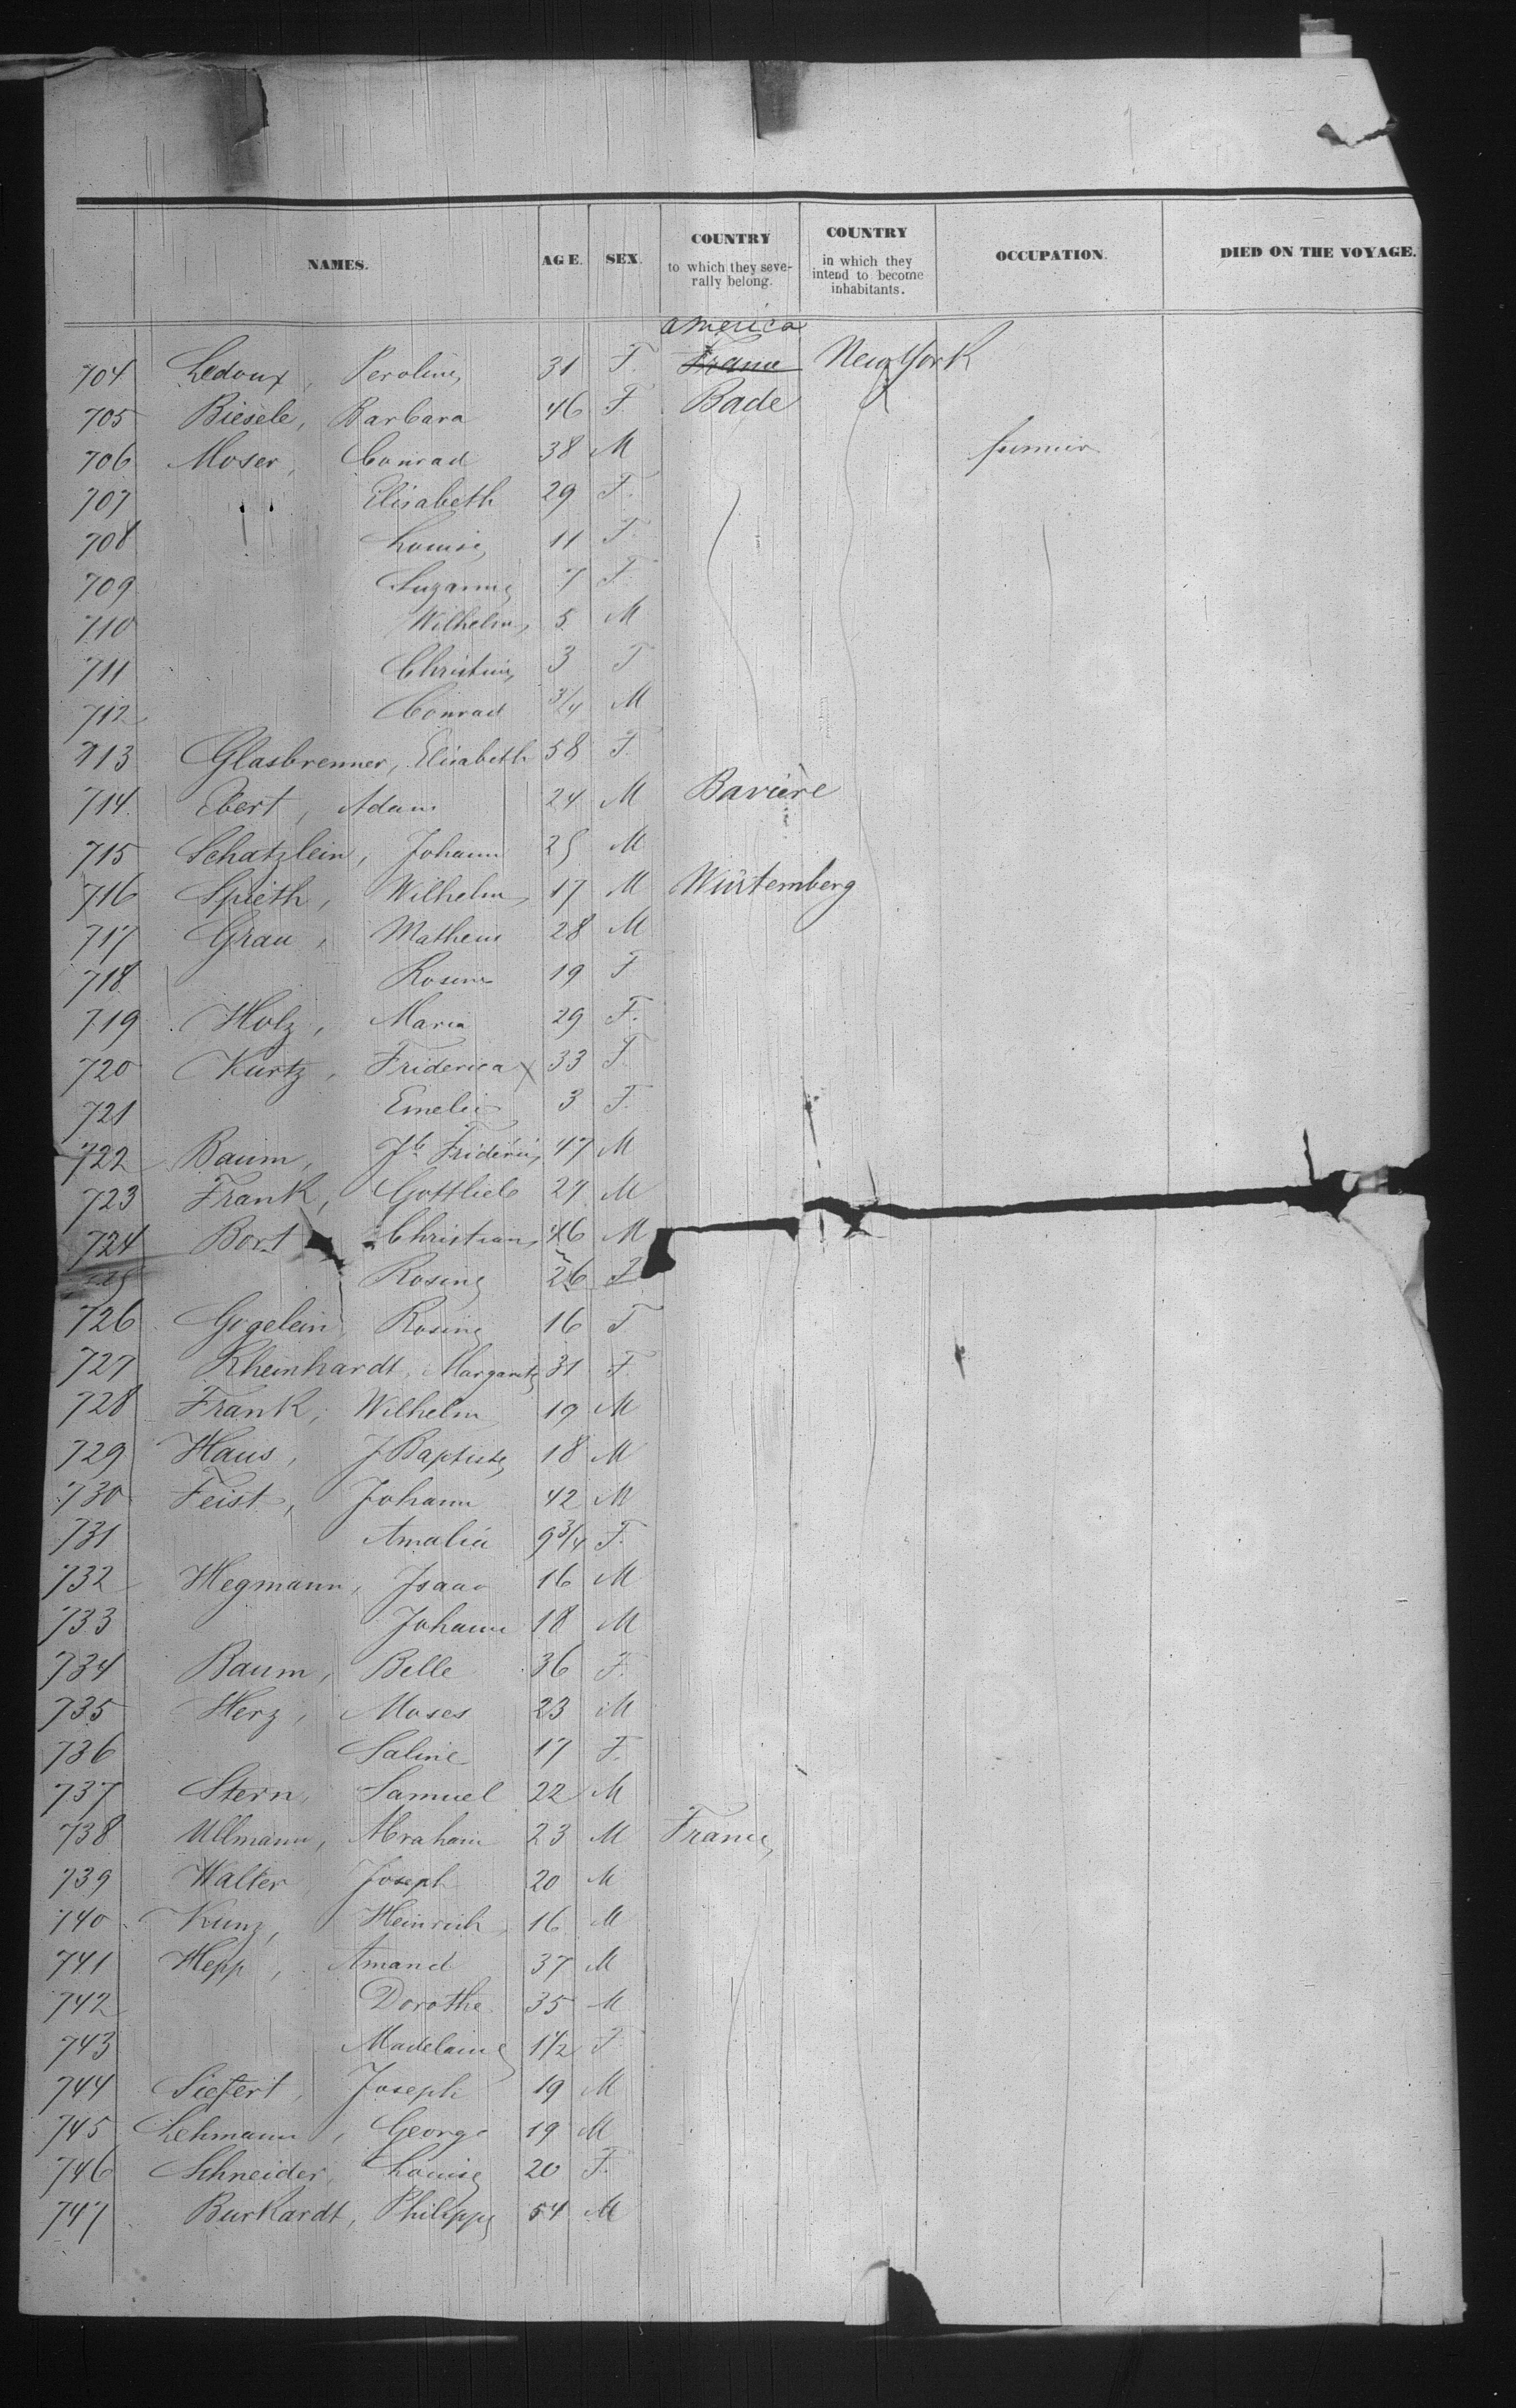 NAMES. AGE. SEX. COUNTRY to which they severally belong. COUNTRY in which they intend to become inhabitants. OCCUPATION. DIED ON THE VOYAGE.
america
704 Ledoux, Peroline 31 F. France New York
705 Biesele, Barbara 46 F. Bade
706 Moser, Conrad 38 M
707 " Elisabeth 29 F.
708 Louise 11 F.
709 Suzanne 7 F.
710 Wilhelm 5 M
711 Christine 3 F
712 Conrad 3/4 M
713 Glasbrenner, Elisabeth 58 F.
714 Ebert, Adam 24 M Bavière
715 Schatzlein, Johann 25 M
716 Spieth, Wilhelm 17 M Würtemberg
717 Grau, Matheus 28 M
718 Rosine 19 F
719 Holz, Maria 29 F.
720 Kurtz, Friderica X 33 F.
721 Emelie 3 F.
722 Baum, 47 M
723 Frank, Gottlieb 24 M
724 Bort Christian 46 M
725 Rosine 26 F
726 Gogelein Rosine 16 F
727 Rheinhardt, Margarite 31 F.
728 Frank, Wilhelm 19 M
729 Haus, J Baptiste 18 M
730 Feist, Johann 42 M
731 Amalia 9 3/4 F.
732 Hegmann, Isaac 16 M
733 Johann 18 M
734 Baum, Belle 36 F.
735 Herz, Moses 23 M
736 Saline 17 F.
737 Stern, Samuel 22 M
738 Ullmann, Abraham 23 M France
739 Walter Joseph 20 M
740 Kunz, Heinrich 16 M
741 Hepp, Amand 37 M
742 Dorothe 35 M
743 Madelaine 1/2 F.
744 Siefert, Joseph 19 M
745 Lehmann, George 19 M
746 Schneider, Louise 20 F.
747 Burkardt, Philippe 54 M